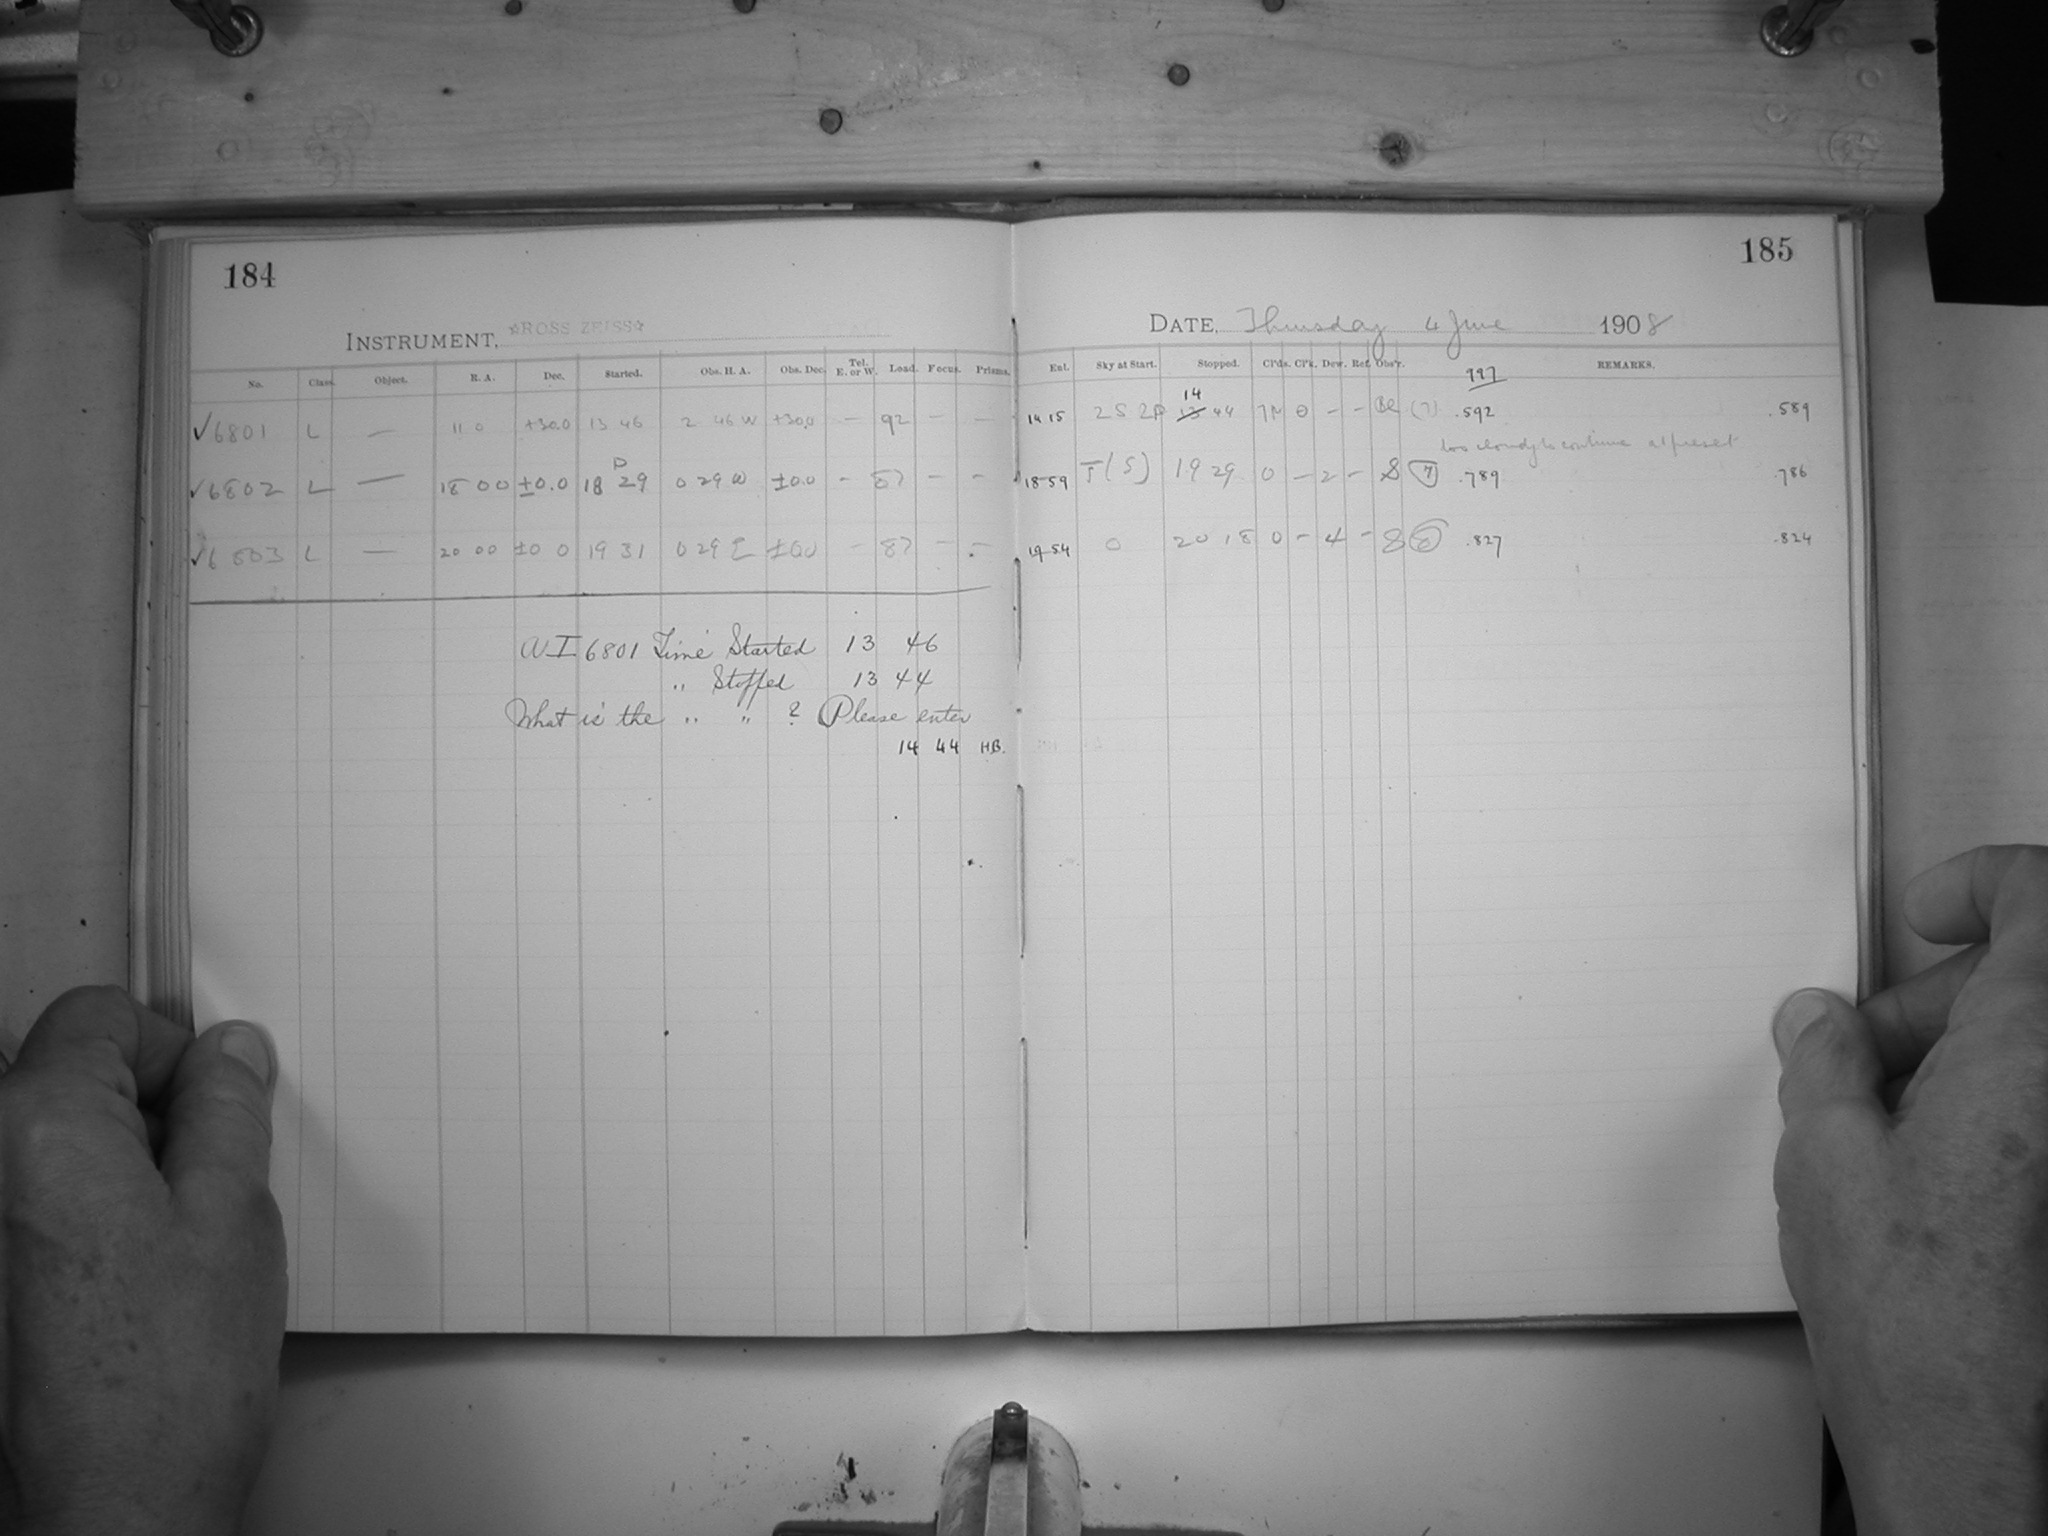 184
INSTRUMENT, ☆ROSS ZEISS☆
No. Class. Object. R. A. Dec. Started. Obs. H. A. Obs. Dec. Tel. E. or W. Load. Focus. Prisms.
✓6801 L — 11 0 +30.0 13 46 2 46 W +30.0 — 92 — —
✓6802 L — 18 00 ±0.0 18 29 0 29 W ±0.0 - 87 - -
✓6803 L — 20 00 ±0 0 19 31 0 29 E ±0.0 — 87 - -
6801 Time Started 13 46
„ Stopped 13 44
What is the „ „ ? Please enter
14 44 H.B.
185
DATE, Thursday 4 June 1908
Ent. Sky at Start. Stopped. Cl'ds. Cl'k. Dew. Ref. Obs'r. REMARKS.
997
14 15 2S 2P 14 13 44 0 - - (7) .592 .589
too cloudy to continue at present
18 59 F(S) 19 29 0 — 2 - S 7 .789 .786
19 54 0 20 18 0 - 4 - S 8 .827 .824